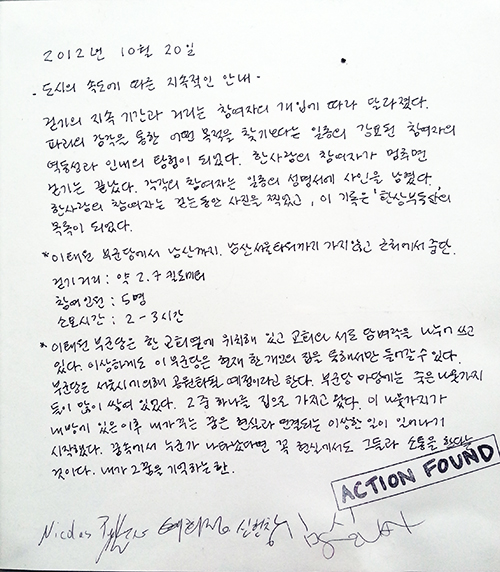 2012년 10월 20일
- 도시의 속도에 따른 지속적인 안내 -
걷기의 지속 기간과 거리는 참여자의 개입에 따라 달라졌다.
파리의 감각을 통한 어떤 목적을 찾기보다는 일종의 강요된 참여자의
역동성과 인내의 탐험이 되었다. 한사람의 참여자가 멈추면
걷기는 끝났다. 각각의 참여자는 일종의 성명서에 사인을 남겼다.
한사람의 참여자는 걷는동안 사진을 찍었고, 이 기록은 '현상부동산'의
목록이 되었다.
* 이태원 부군당에서 남산까지. 남산서울타워까지 가지않고 근처에서 중단.
걷기거리 : 약 2.7 킬로미터
참여인원 : 5명
소요시간 : 2-3시간
* 이태원 부군당은 한 교회옆에 위치해 있고 교회와 서로 담벼락을 나누어 쓰고
있다. 이상하게도 이 부군당은 현재 한 개인의 집을 통해서만 들어갈 수 있다.
부군당은 서울시에 의해 공원화될 예정이라고 한다. 부군당 마당에는 죽은 나뭇가지
들이 많이 쌓여 있었다. 그 중 하나를 집으로 가지고 왔다. 이 나뭇가지가
내 방에 있은 이후 내가 꾸는 꿈은 현실과 연결되는 이상한 일이 일어나기
시작했다. 꿈속에서 누군가 나타났다면 꼭 현실에서도 그들과 소통을 한다는
것이다. 내가 그 꿈을 기억하는 한.
ACTION FOUND
Nicolas 신현창